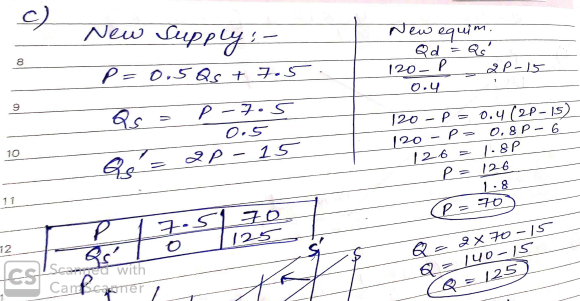 c)
New Supply :-
P = 0.5 Qs + 7.5
Qs = P - 7.5 / 0.5
Qs' = 2P - 15
P | 7.5 | 70
Qs' | 0 | 125
P
S' S
New equim.
Qd = Qs'
120 - P / 0.4 = 2P - 15
120 - P = 0.4 (2P - 15)
120 - P = 0.8P - 6
126 = 1.8P
P = 126 / 1.8
P = 70
Q = 2 x 70 - 15
Q = 140 - 15
Q = 125
8
9
10
11
12
CS Scanned with
CamScanner